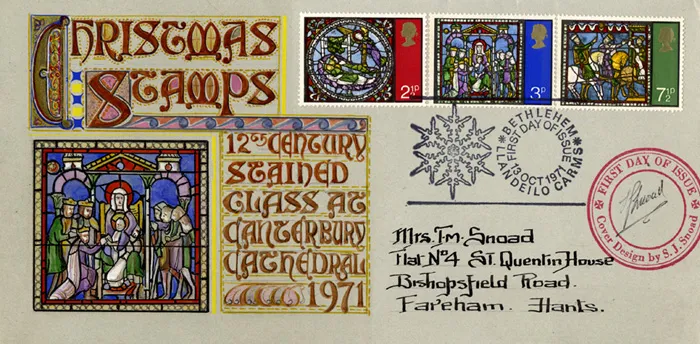 Christmas
Stamps
12th Century
Stained
Glass at
Canterbury
Cathedral
1971
2½P
3P
7½P
BETHLEHEM
FIRST DAY OF ISSUE
13 OCT 1971
LLANDEILO CARMS
FIRST DAY OF ISSUE
Cover Design by S. J. Snoad
Mrs. F.M. Snoad
Flat Nº4 St. Quentin House
Bishopsfield Road.
Fareham. Hants.